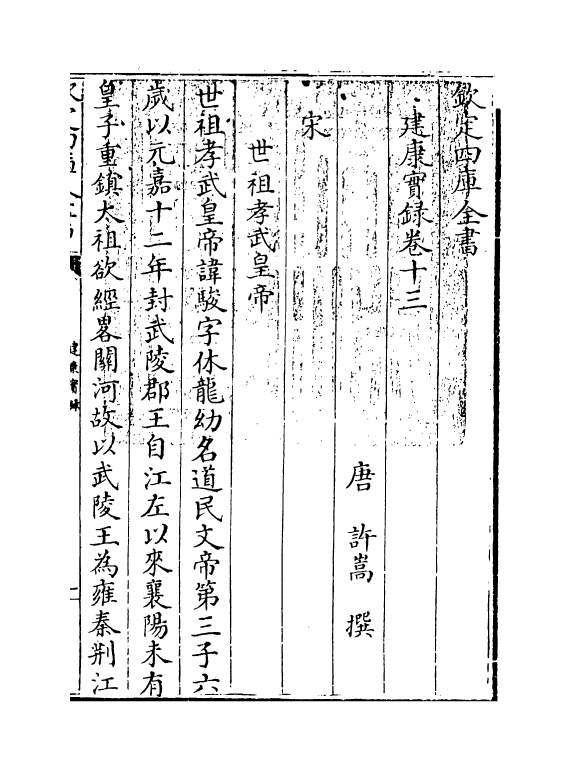 欽定四庫全書
建康實録卷十三
唐 許嵩 撰
宋
世祖孝武皇帝
世祖孝武皇帝諱駿字休龍幼名道民文帝第三子六
歲以元嘉十二年封武陵郡王自江左以來襄陽未有
皇子重鎮太祖欲經畧關河故以武陵王為雍秦荆江
建康實録
一